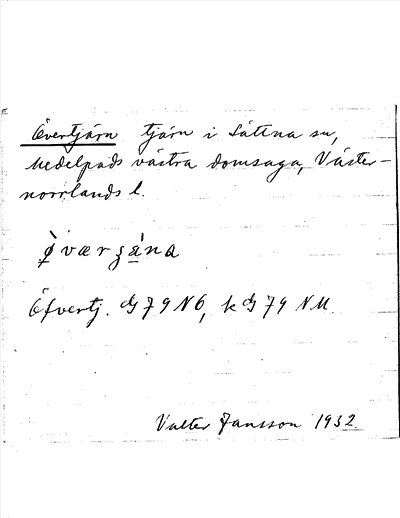 Övertjärn tjärn i Sättna sn,
Medelpads västra domsaga, Väster-
norrlands l.
Öfvertj. G 79 NÖ, k G 79 NU.
Valter Jansson 1932.